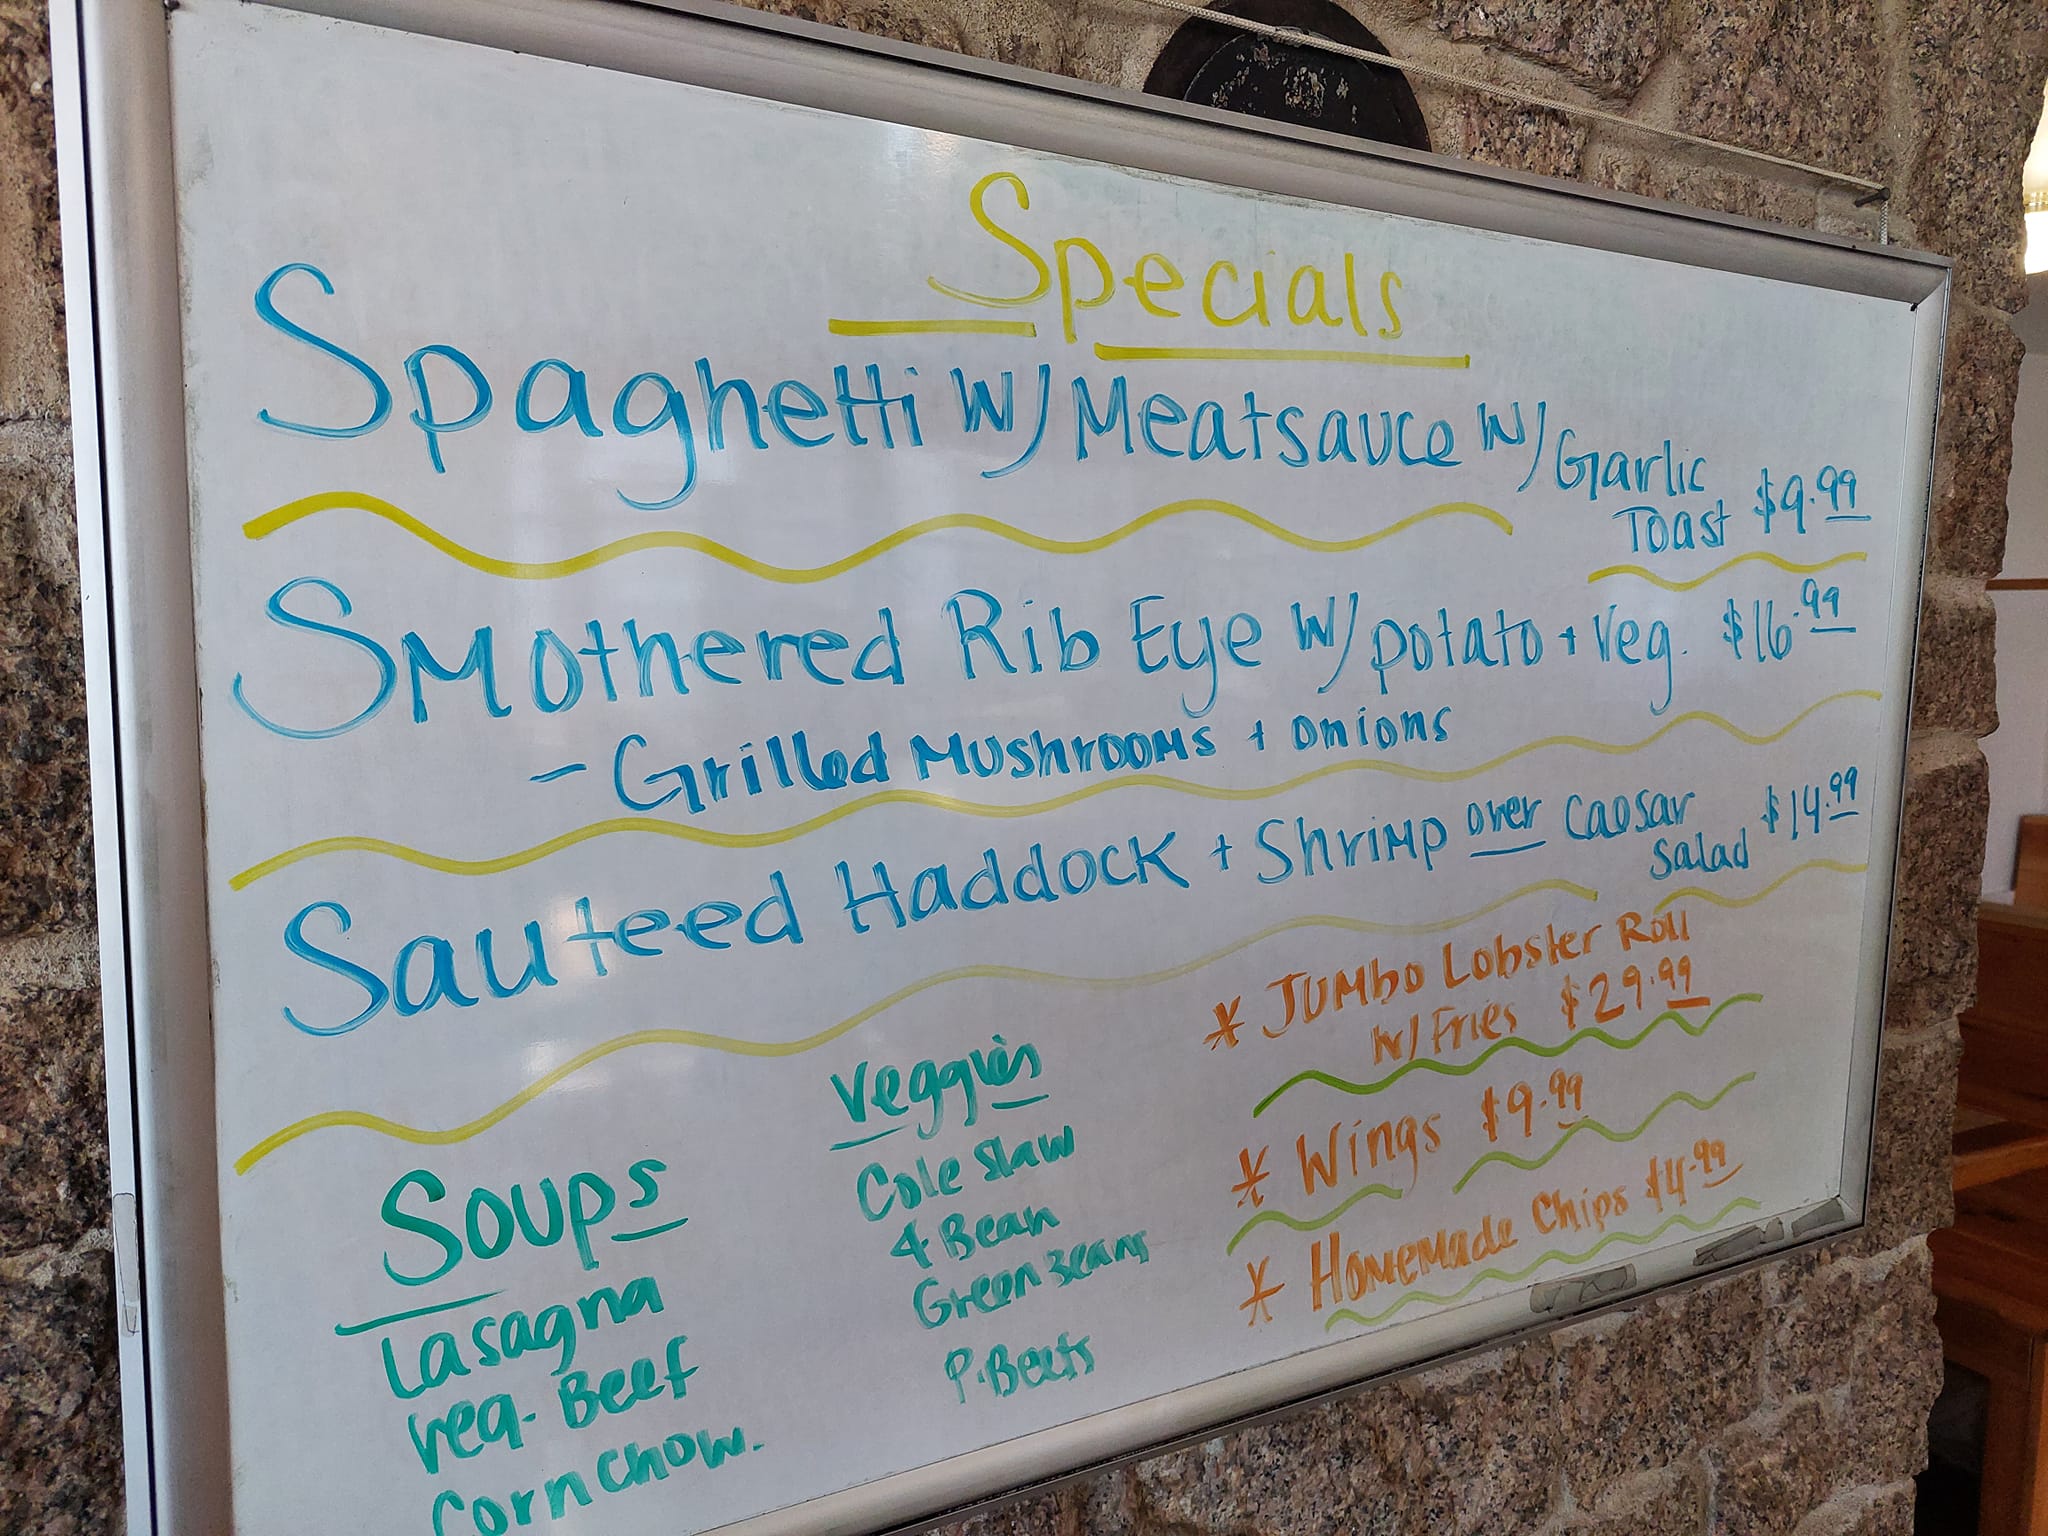 Specials
Spaghetti w/ Meatsauce w/ Garlic
Toast $9.99
Smothered Rib Eye w/ potato + veg. $16.99
- Grilled Mushrooms + onions
Sauteed Haddock + Shrimp over Caesar
Salad $14.99
Soups
Lasagna
Veg. Beef
Corn chow.
Veggies
Cole Slaw
4 Bean
Green Beans
P. Beets
* Jumbo Lobster Roll
w/ Fries $29.99
* Wings $9.99
* Homemade Chips $4.99